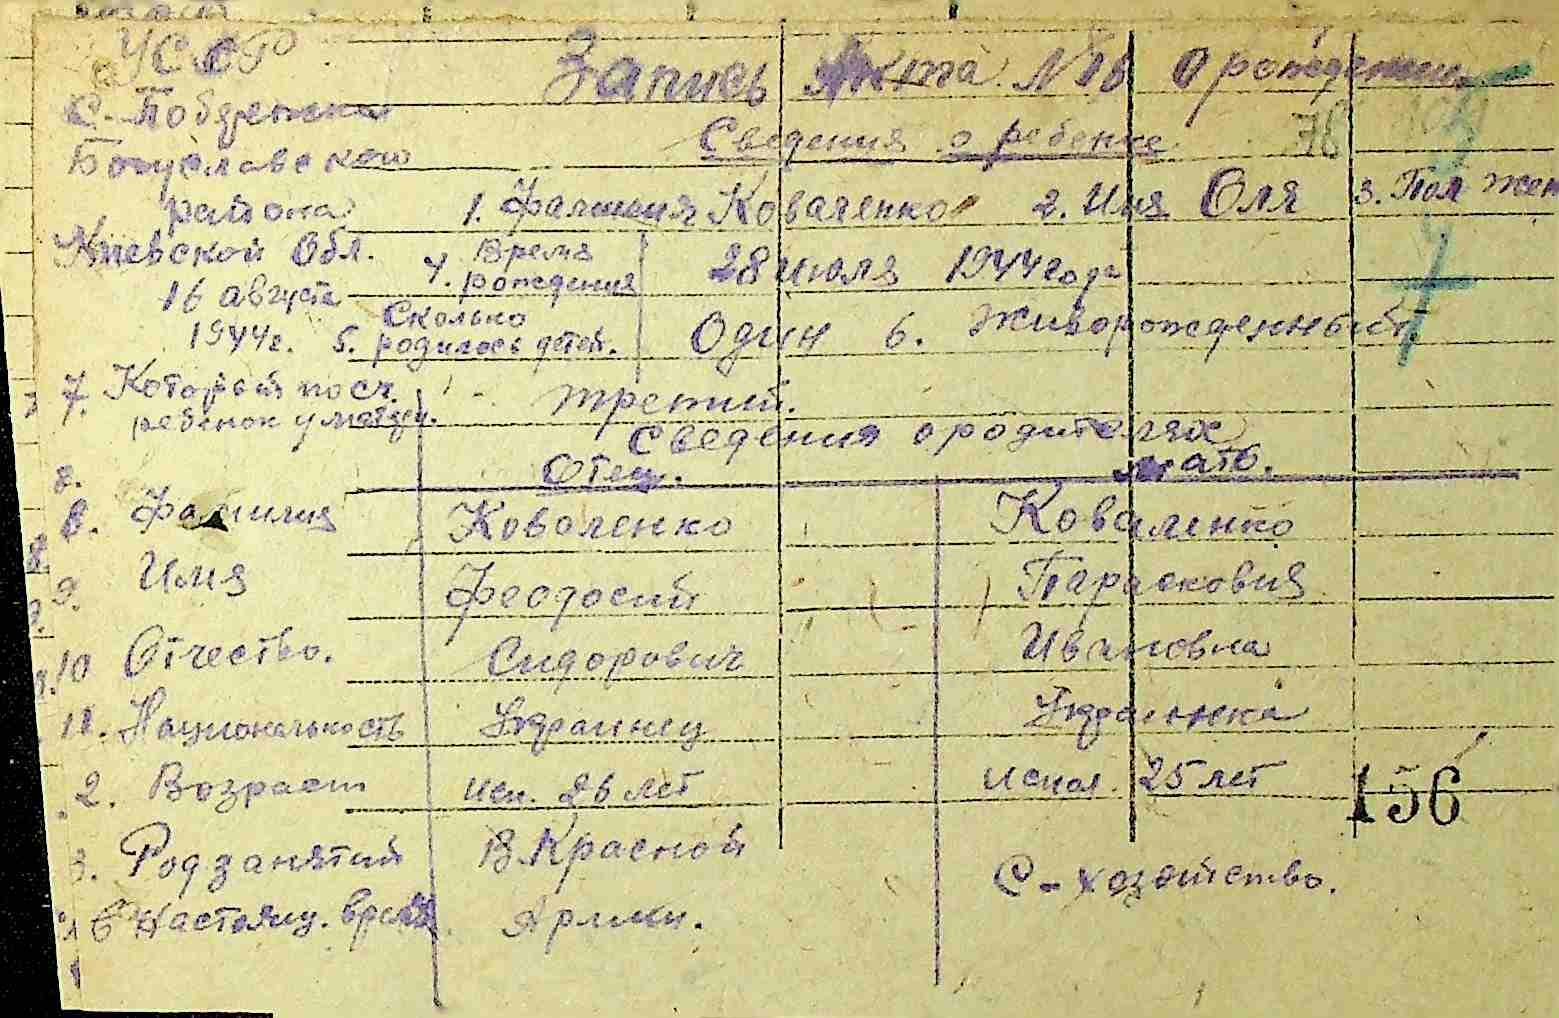 УССР Запись Акта № 16 о рождении
С-Побережка
Богуславского Сведения о ребенке 78
района 1. Фамилия Коваленко 2. Имя Оля 3. Пол жен
Киевской Обл. 4. Время рождения 28 июля 1944 года
16 августа
1944г. 5. Сколько родилось детей. Один 6. Живорожденный
7. Который по сч. ребенок у матери. третий.
Сведения о родителях
8. Отец. мать.
8. Фамилия Коваленко Коваленко
9. Имя Феодосий Парасковия
10 Отчество. Сидорович Ивановна
11. Национальность Украинец Украинка
2. Возраст исп. 26 лет испол. 25 лет
156
3. Род занятий В Красной С-хозяйство.
в настоящ. время Армии.